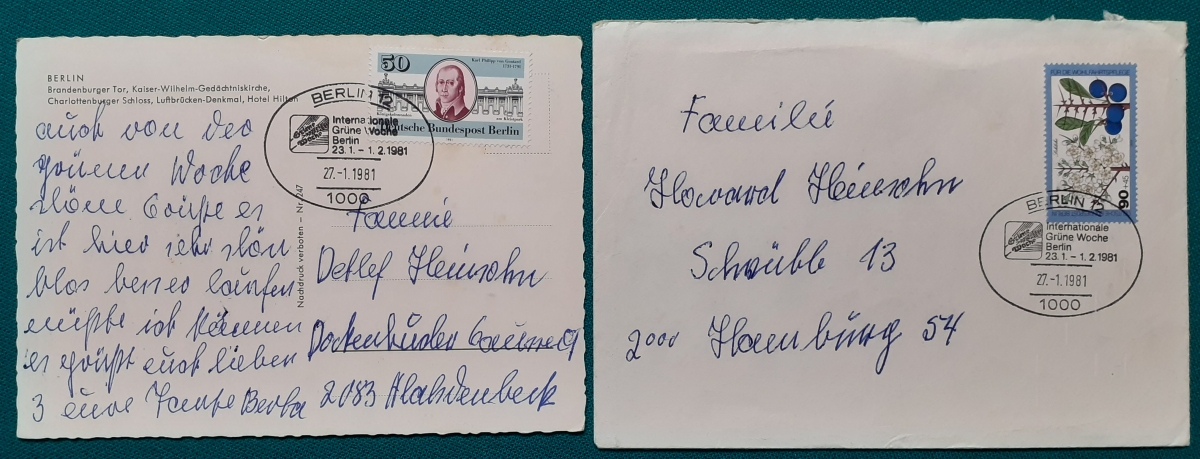 BERLIN
Brandenburger Tor, Kaiser-Wilhelm-Gedächtniskirche,
Charlottenburger Schloss, Luftbrücken-Denkmal, Hotel Hilton
50
Karl Philipp von Gontard
1731-1791
Deutsche Bundespost Berlin
BERLIN 12
Internationale
Grüne Woche
Berlin
23.1. – 1.2.1981
27.-1.1981
1000
auch von der
grünen Woche
schöne Grüße es
ist hier sehr schön
blos besser laufen
müßte ich können
es grüßt euch lieben
3 eure Tante Berta
Nachdruck verboten – Nr. 247
Familie
Detlef Heinsohn
2083 Halstenbek
FÜR DIE WOHLFAHRTSPFLEGE
90+45
BERLIN 12
Internationale
Grüne Woche
Berlin
23.1. – 1.2.1981
27.-1.1981
1000
Familie
Howard Heinsohn
Schrübb 13
2000 Hamburg 54